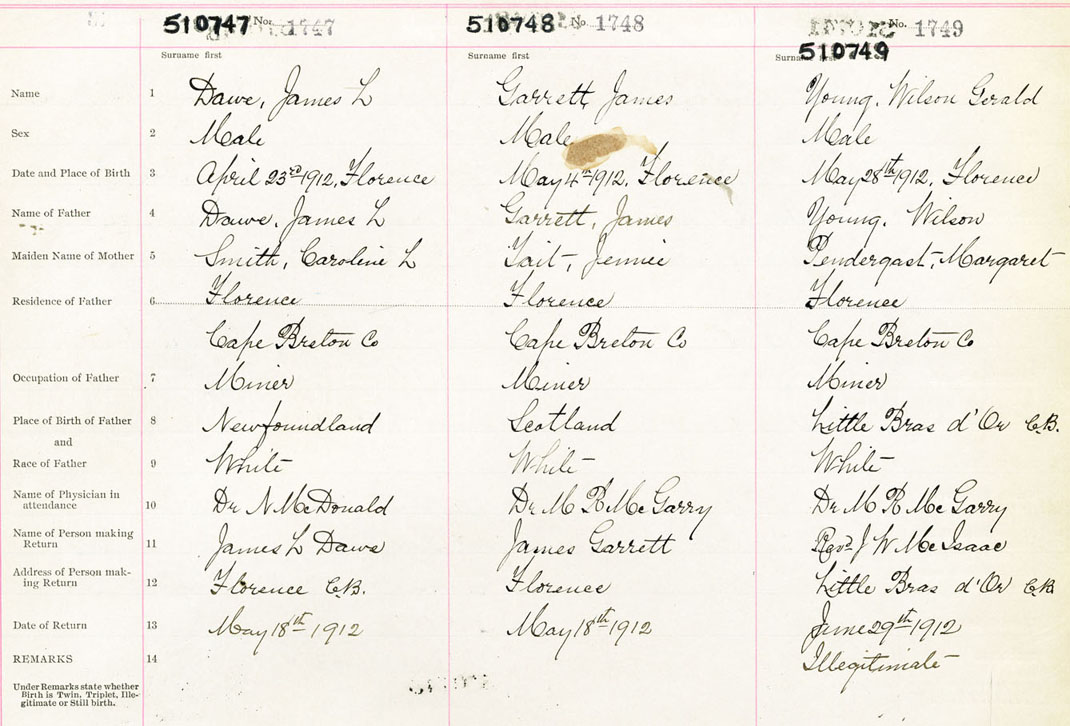 510747 No. 1747 510748 No 1748 No. 1749
510749
Surname first Surname first
Name 1 Dawe, James L Garrett, James Young, Wilson Gerald
Sex 2 Male Male Male
Date and Place of Birth 3 April 23rd 1912, Florence May 4th 1912, Florence May 28th 1912, Florence
Name of Father 4 Dawe, James L Garrett, James Young, Wilson
Maiden Name of Mother 5 Smith, Caroline L Tait, Jennie Pendergast, Margaret
Residence of Father 6 Florence Florence Florence
Cape Breton Co Cape Breton Co Cape Breton Co
Occupation of Father 7 Miner Miner Miner
Place of Birth of Father 8 Newfoundland Scotland Little Bras d'Or C.B.
and
Race of Father 9 White White White
Name of Physician in
attendance 10 Dr N McDonald Dr M R McGarry Dr M R McGarry
Name of Person making
Return 11 James L Dawe James Garrett Revd J W McIsaac
Address of Person mak-
ing Return 12 Florence C.B. Florence Little Bras d'Or C.B
Date of Return 13 May 18th 1912 May 18th 1912 June 29th 1912
REMARKS 14 Illegitimate
Under Remarks state whether
Birth is Twin, Triplet, Ille-
gitimate or Still birth.